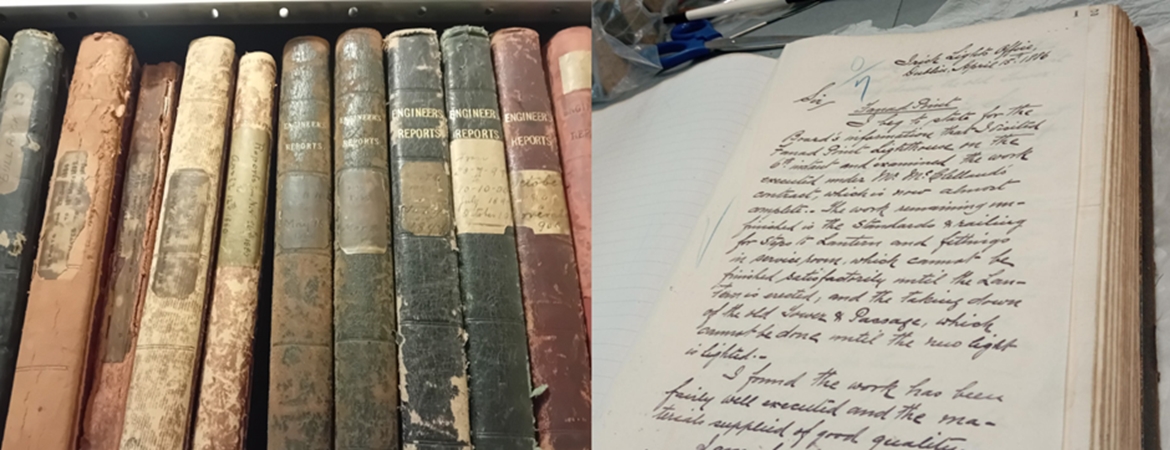 ENGINEER'S
REPORTS
ENGINEER'S
REPORTS
ENGINEER'S
REPORTS
ENGINEER'S
REPORTS
ENGINEER'S
REPORTS
July
Irish Lights Office,
Dublin, April 15th
Sir
Fanad Point
I beg to state for the
Board's information that I visited
Fanad Point Lighthouse on the
6th instant and examined the work
executed under Mr McClelland's
contract, which is now almost
complete. - The work remaining un-
finished is the Standards & railing
for steps to Lantern and fittings
in service room, which cannot be
finished satisfactorily until the Lan-
tern is erected, and the taking down
of the old Tower & Passage, which
cannot be done until the new light
is lighted. -
I found the work has been
fairly well executed and the ma-
terials supplied of good quality